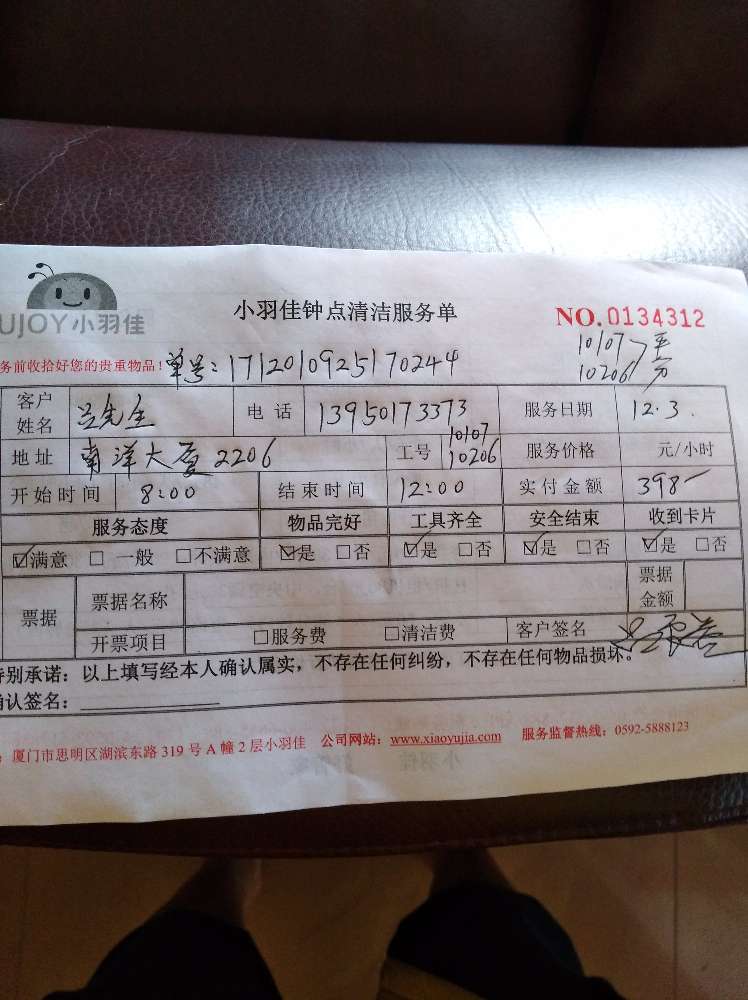 UJOY小羽佳
小羽佳钟点清洁服务单
NO.0134312
务前收拾好您的贵重物品!
单号:1712010925170244
10107
10206
客户姓名 先生 电话 13950173373 服务日期 12.3.
地址 南洋大厦2206 工号 10107 10206 服务价格 元/小时
开始时间 8:00 结束时间 12:00 实付金额 398
服务态度 物品完好 工具齐全 安全结束 收到卡片
☑满意 □一般 □不满意 ☑是 □否 ☑是 □否 ☑是 □否 ☑是 □否
票据 票据名称 票据金额
开票项目 □服务费 □清洁费 客户签名
特别承诺:以上填写经本人确认属实,不存在任何纠纷,不存在任何物品损坏。
确认签名:
:厦门市思明区湖滨东路319号A幢2层小羽佳 公司网站:www.xiaoyujia.com 服务监督热线:0592-5888123